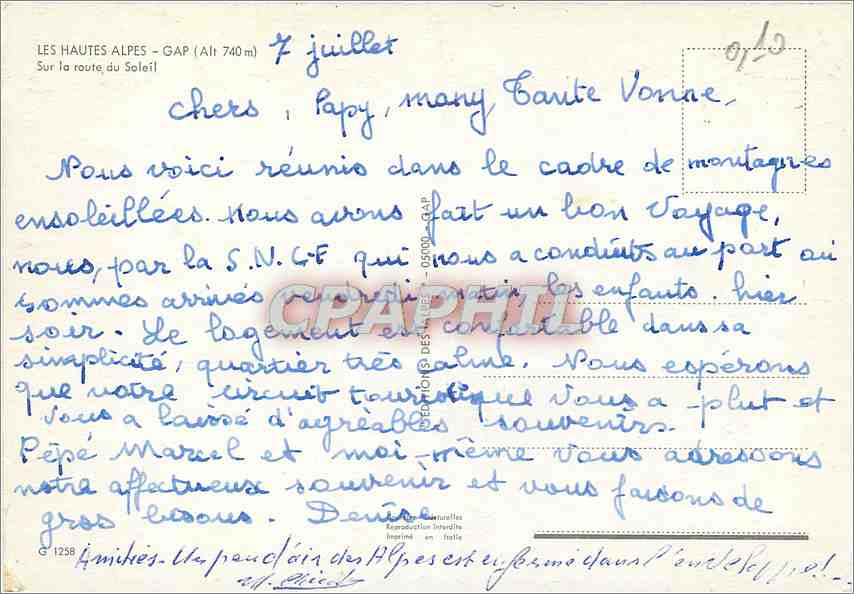 LES HAUTES ALPES - GAP (Alt 740 m) 7 juillet
Sur la route du Soleil
0,10
chers, Papy, many, Tante Vonne,
Nous voici réunis dans le cadre de montagnes
ensoleillées. Nous avons fait un bon voyage,
nous, par la S.N.C.F qui nous a conduits au port où
sommes arrivés vendredi matin, les enfants hier
soir. Le logement est confortable dans sa
simplicité, quartier très calme. Nous espérons
que votre circuit touristique vous a plut et
vous a laissé d'agréables souvenirs.
Pépé Marcel et moi-même vous adressons
notre affectueux souvenir et vous faisons de
gros bisous. Denise
EDITIONS DES ALPES - 05000 - GAP
CPAPHIL
Couleurs Naturelles
Reproduction Interdite
Imprimé en Italie
G 1258
Amitiés - Un peu d'air des Alpes est enfermé dans l'enveloppe!..